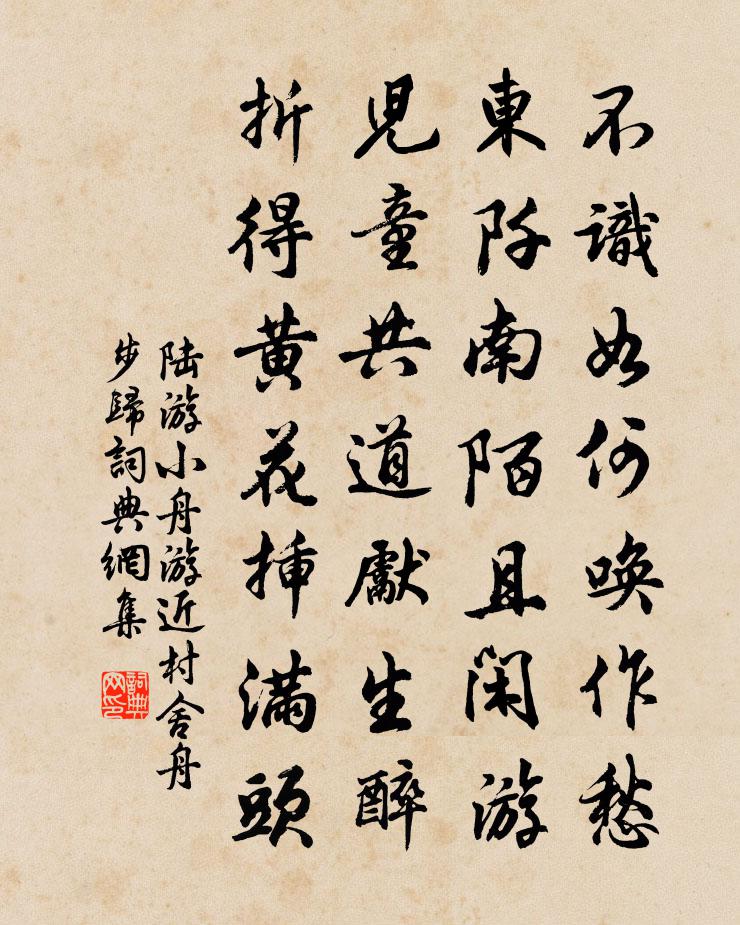 不識如何喚作愁
東阡南陌且閑游
兒童共道獻生醉
折得黄花挿滿頭
陆游小舟游近村舍舟
步歸詞典網集
詞典网印